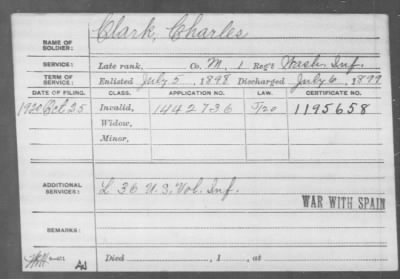 NAME OF SOLDIER: Clark, Charles
SERVICE: Late rank, Co. M, 1 Reg't Wash. Inf.
TERM OF SERVICE: Enlisted July 5, 1898 Discharged July 6, 1899
DATE OF FILING. CLASS. APPLICATION NO. LAW. CERTIFICATE NO.
1920 Oct 25 Invalid, 1442736 1195658
Widow,
Minor,
ADDITIONAL SERVICES: L 36 U.S. Vol. Inf.
WAR WITH SPAIN
REMARKS:
Died , 1 , at